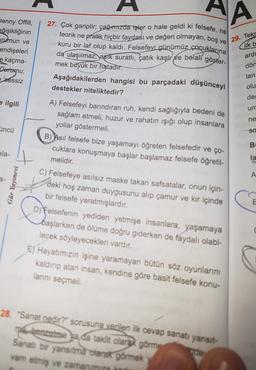 lenny Offill,
27. Çok gariptir; çağımızda işler o hale geldi ki felsefe, ne
teorik ne pratik hiçbir faydası ve değeri olmayan, boş ve
kuru bir laf olup kaldı. Felsefeyi günümüz çocuklarına
da ulaşılmaz, asık suratlı, çatık kaşlı ve belalı göster-
mek büyük bir hatadır.
Aşağıdakilerden hangisi bu parçadaki düşünceyi
destekler niteliktedir?
A) Felsefeyi barındıran ruh, kendi sağlığıyla bedeni de
sağlam etmeli, huzur ve rahatın ışığı olup insanlara
yollar göstermeli.
B) Asıl felsefe bize yaşamayı öğreten felsefedir ve ço-
cuklara konuşmaya başlar başlamaz felsefe öğretil-
melidir.
C) Felsefeye asılsız maske takan safsatalar, onun için-
deki hoş zaman duygusunu alıp çamur ve kir içinde
bir felsefe yaratmışlardır.
D) Felsefenin yediden yetmişe insanlara, yaşamaya
başlarken de ölüme doğru giderken de faydalı olabi-
lecek söyleyecekleri vardır.
E) Hayatımızın işine yaramayan bütün söz oyunlarını
kaldırıp atan insan, kendine göre basit felsefe konu-
larını seçmeli.
Gür Yayınevi
28. "Sanat nedir?" sorusuna verilen ilk cevap sanatı yansıt-
ya da taklit olarak
Sanatı bir yansıtma olarak görmek
29.